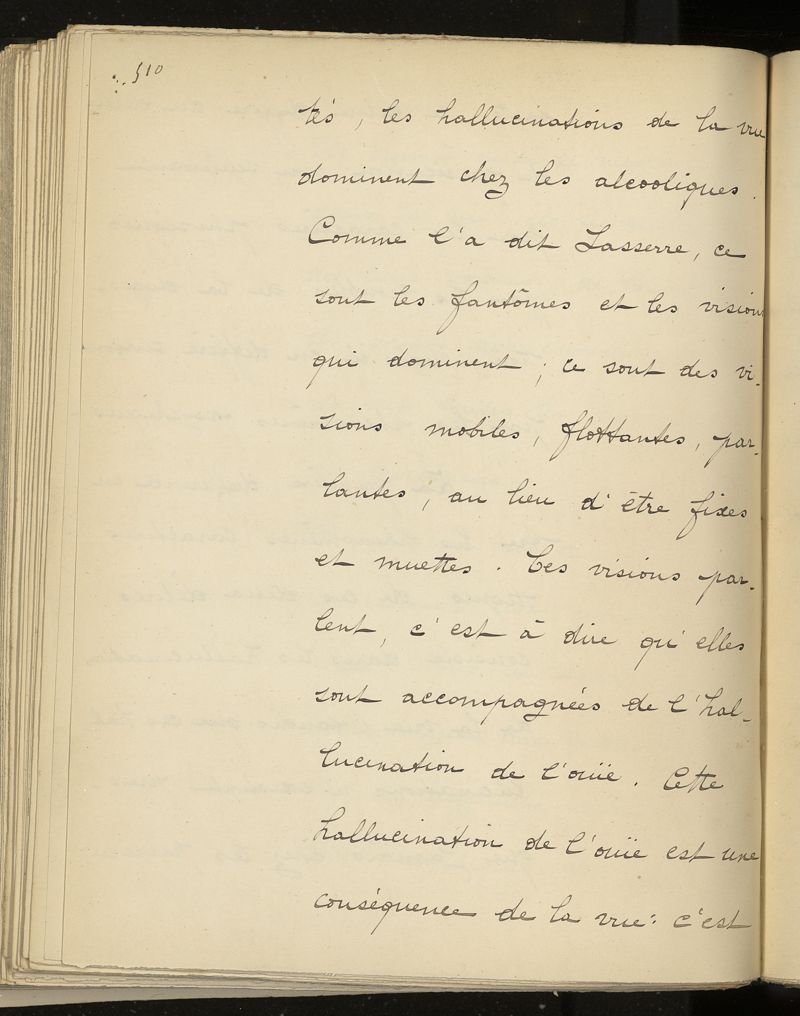 510
tés, les hallucinations de la vue
dominent chez les alcooliques.
Comme l'a dit Lasserre, ce
sont les fantômes et les visions
qui dominent ; ce sont des vi-
sions mobiles, flottantes, par-
lantes, au lieu d'être fixes
et muettes. Ces visions par-
lent, c'est à dire qu'elles
sont accompagnées de l'hal-
lucination de l'ouïe. Cette
hallucination de l'ouïe est une
conséquence de la vue : c'est